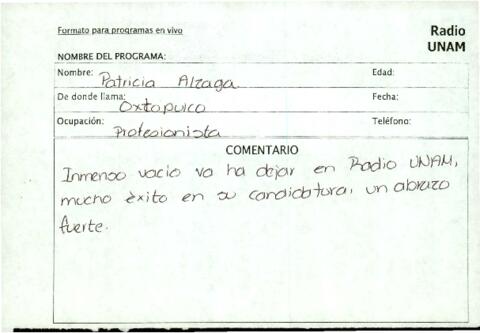 Formato para programas en vivo
Radio
UNAM
NOMBRE DEL PROGRAMA:
Nombre: Patricia Alzaga. Edad:
De donde llama: Oxtopulco Fecha:
Ocupación: Profesionista Teléfono:
COMENTARIO
Inmenso vacio va ha dejar en Radio UNAM,
mucho èxito en su candidatura, un abrazo
fuerte.